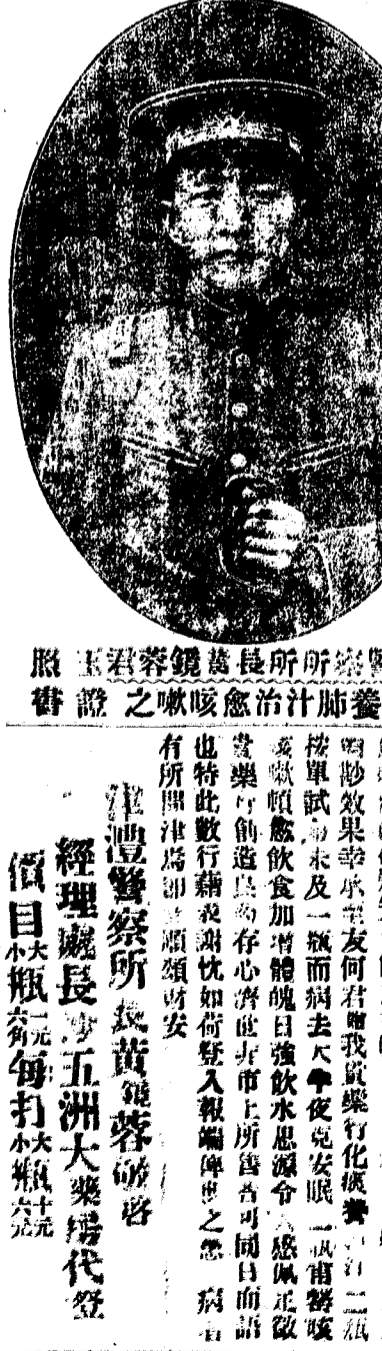 警察所所長黃鏡蓉君玉照
養肺汁治愈咳嗽之證書
妙效果幸承至友何君贈我貴藥行化痰養汁二瓶
按單試未及一瓶而病去大半夜克安眠一瓶甫罄咳
咳嗽頓愈飲食加增體魄日強飲水思源令人感佩足徵
貴藥行創造良藥存心濟世非市上所售者可同日而語
也特此數行藉表謝忱如荷登入報端俾世之患 病者
有所問津焉即順頌財安
津澧警察所長黃鏡蓉敬啓
經理處長沙五洲大藥房代登
價目大瓶一元小瓶六角每打大瓶十元小瓶六元